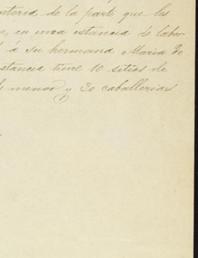 de la parte que les
, en una estancia de labor
á su hermana Maria
estancia tiene 10 sitios de
menor y 30 caballerias